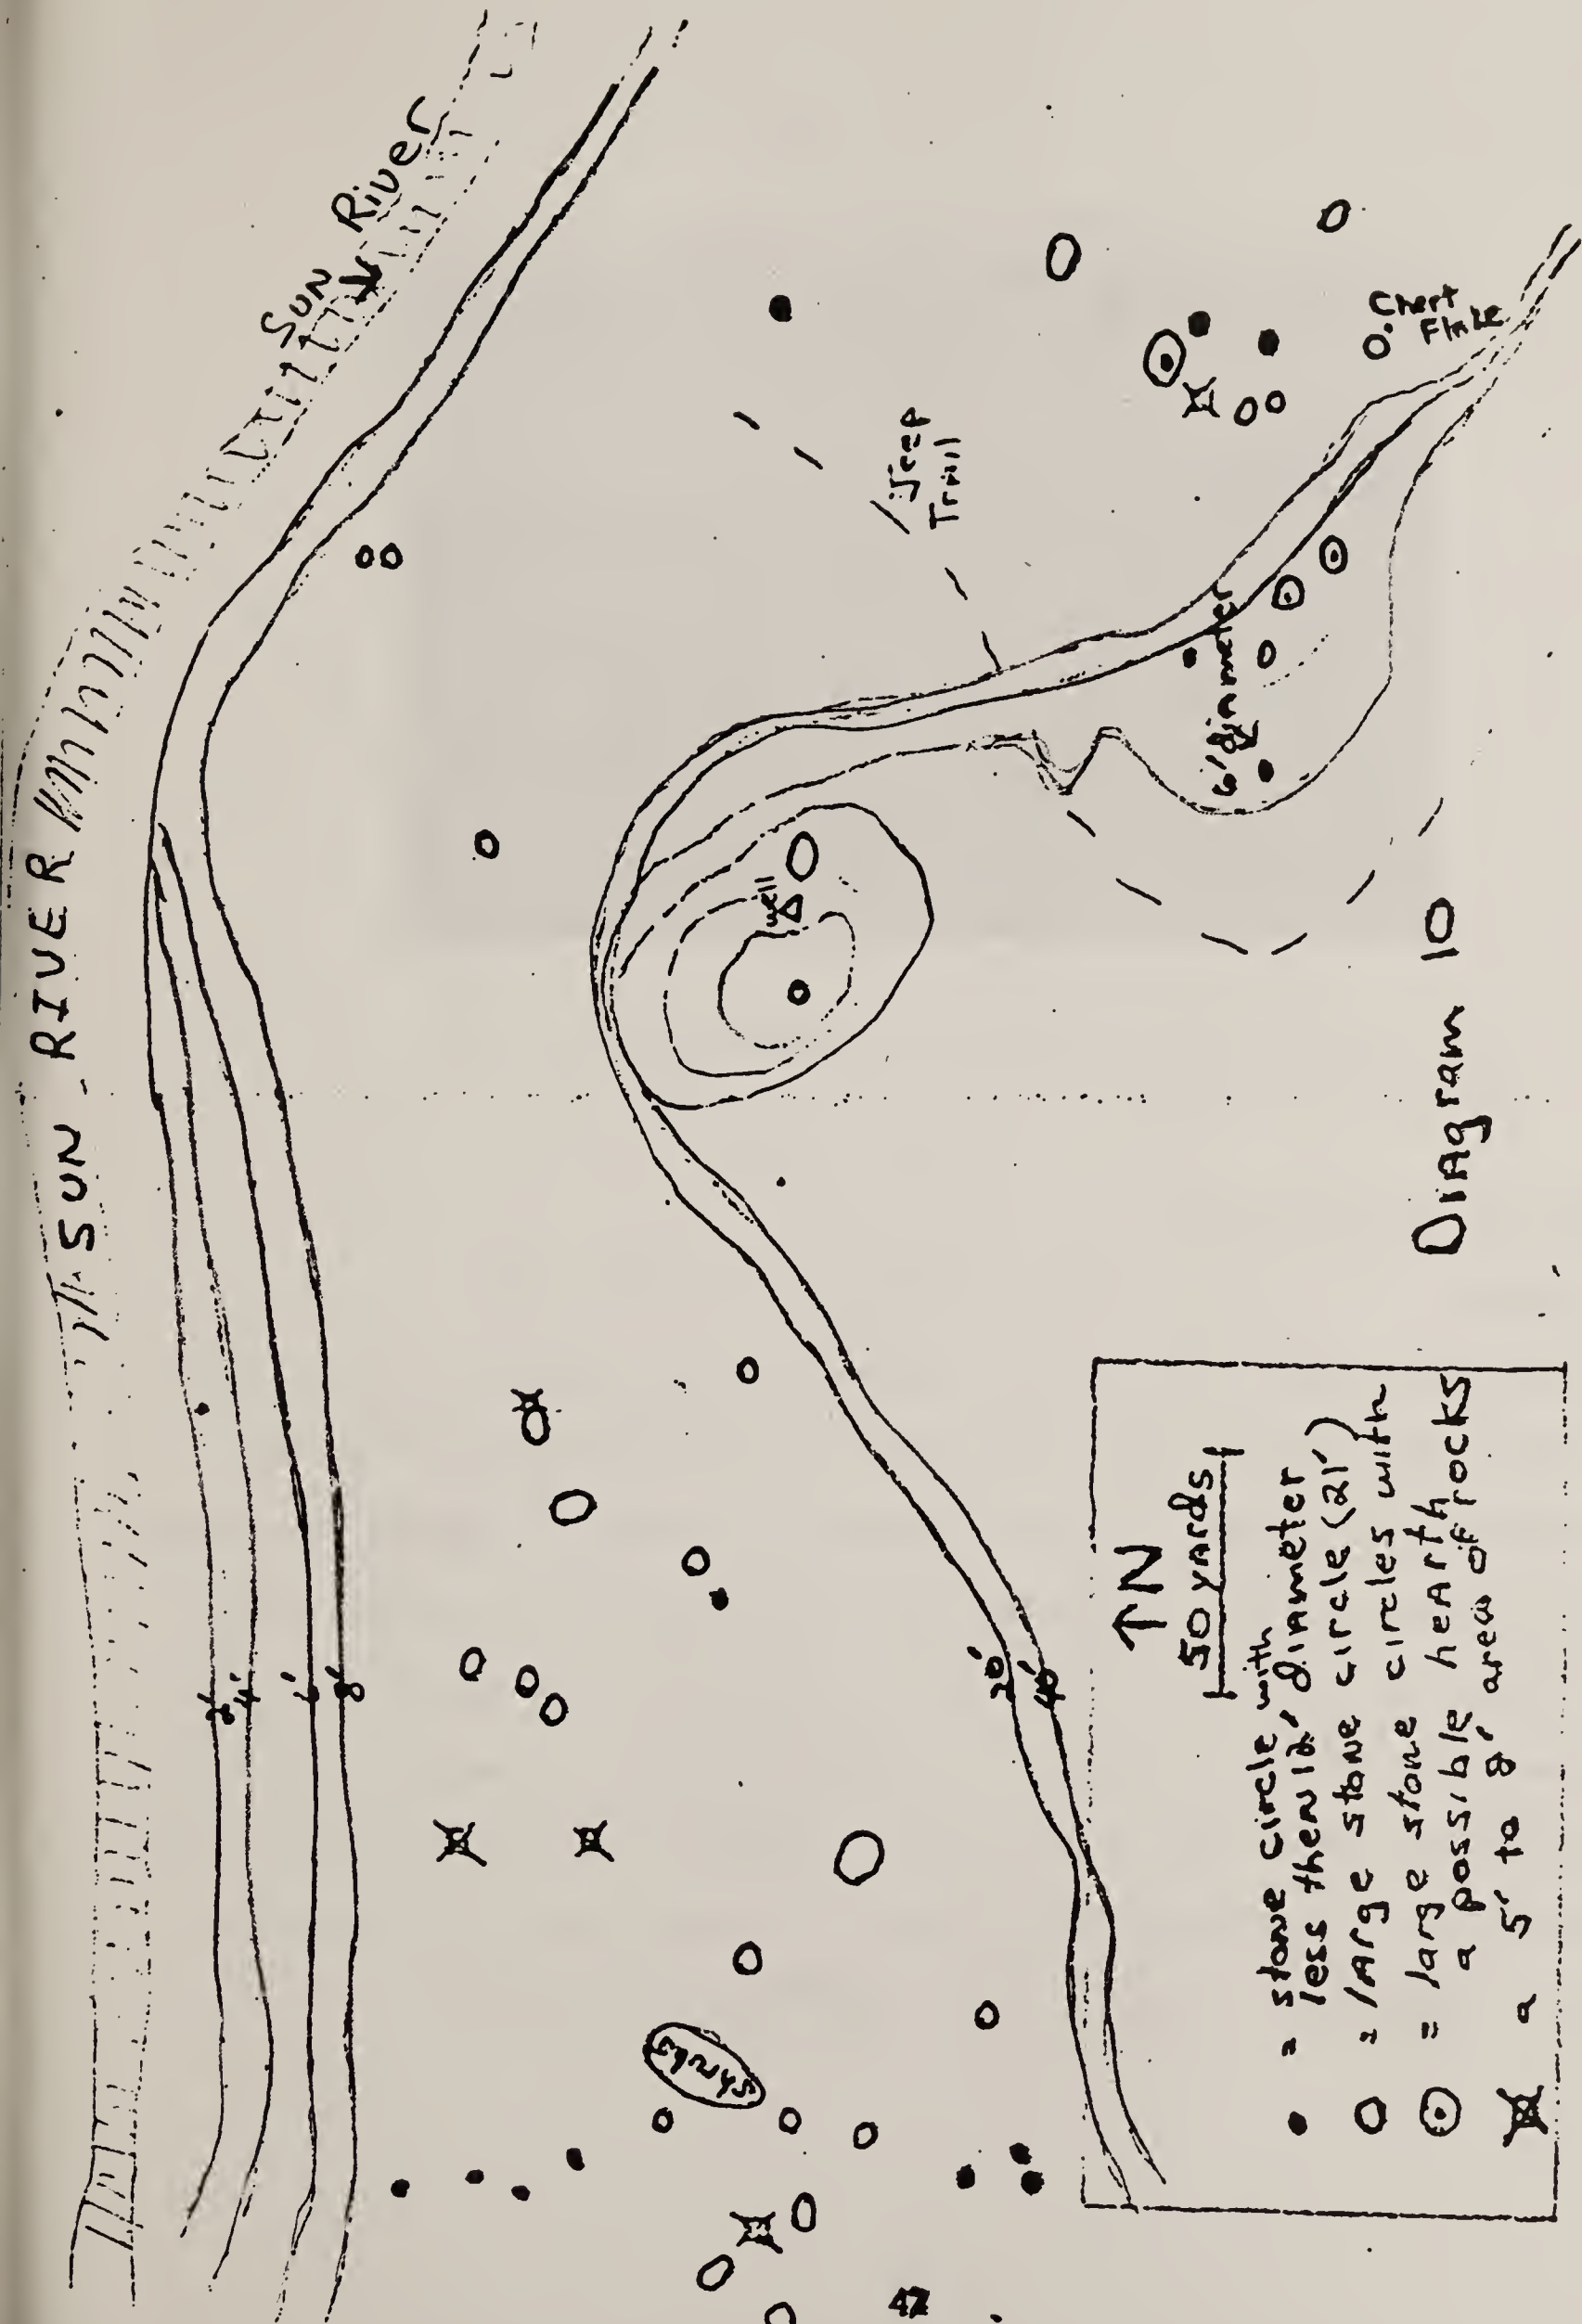 SUN RIVER
Sun River
Jeep
Trail
Chert
Flake
6' diameter
well
2'
4'
6'
8'
20'
40'
shrubs
Diagram 10
↑N
50 yards
• = stone circle with
less then 12' diameter
O = large stone circle (21')
⊙ = large stone circles with
a possible hearth
a 5' to 8' area of rocks
42